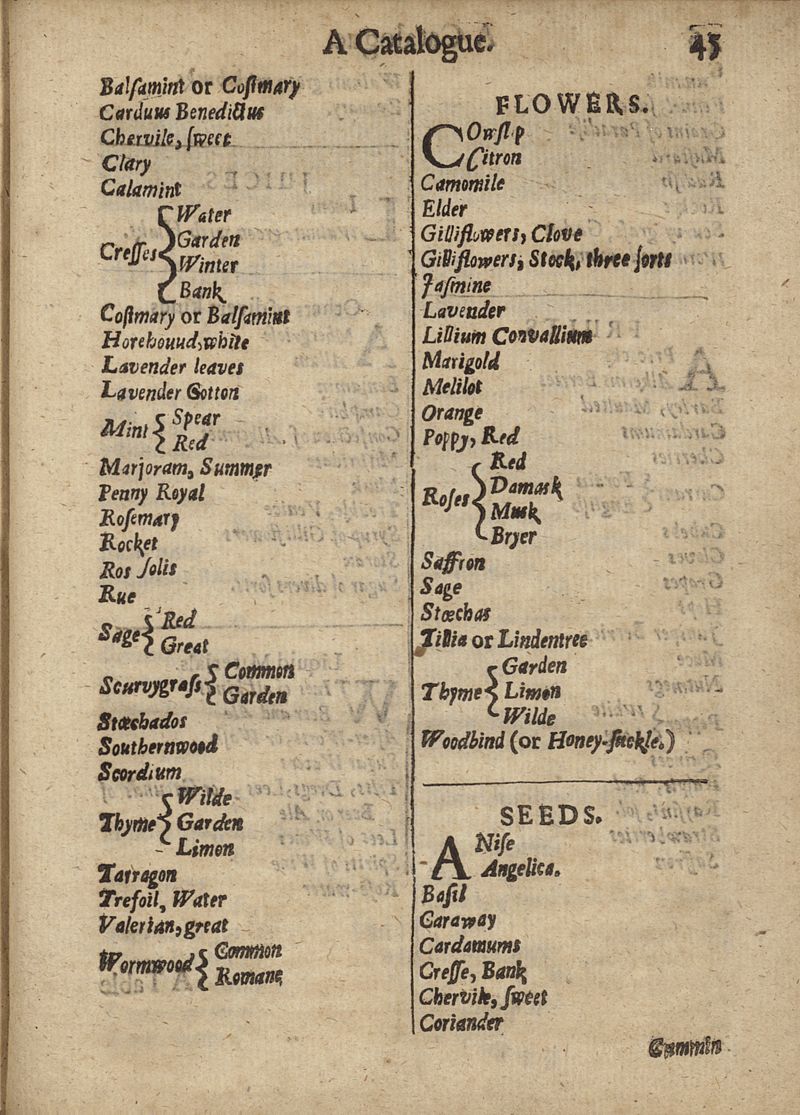 A Catalogue.
45
Balſamint or Coſtmary
Carduus Benedictus
Chervile, ſweet
Clary
Calamint
Creſſes
Water
Garden
Winter
Bank
Coſtmary or Balſamint
Horehouud, white
Lavender leaves
Lavender Cotton
Mint
Spear
Red
Marjoram, Summer
Penny Royal
Roſemary
Rocket
Ros ſolis
Rue
Sage
Red
Great
Scurvygraſs
Common
Garden
Stœchados
Southernwood
Scordium
Thyme
Wilde
Garden
Limon
Tarragon
Trefoil, Water
Valerian, great
Wormwood
Common
Romane
FLOWERS.
COwſlip
Citron
Camomile
Elder
Gilliflowers, Clove
Gilliflowers, Stock, three ſorts
Jaſmine
Lavender
Lillium Convallium
Marigold
Melilot
Orange
Poppy, Red
Roſes
Red
Damask
Musk
Bryer
Saffron
Sage
Stœchas
Tillia or Lindentree
Thyme
Garden
Limon
Wilde
Woodbind (or Honey-ſuckle.)
SEEDS.
ANiſe
Angelica.
Baſil
Caraway
Cardamums
Creſſe, Bank
Chervile, ſweet
Coriander
Cummin